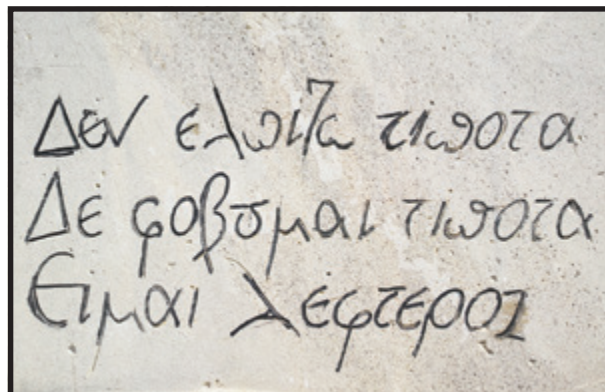 Δεν ελπιζω τιποτα
Δε φοβȣμαι τιποτα
Ειμαι λεφτερος